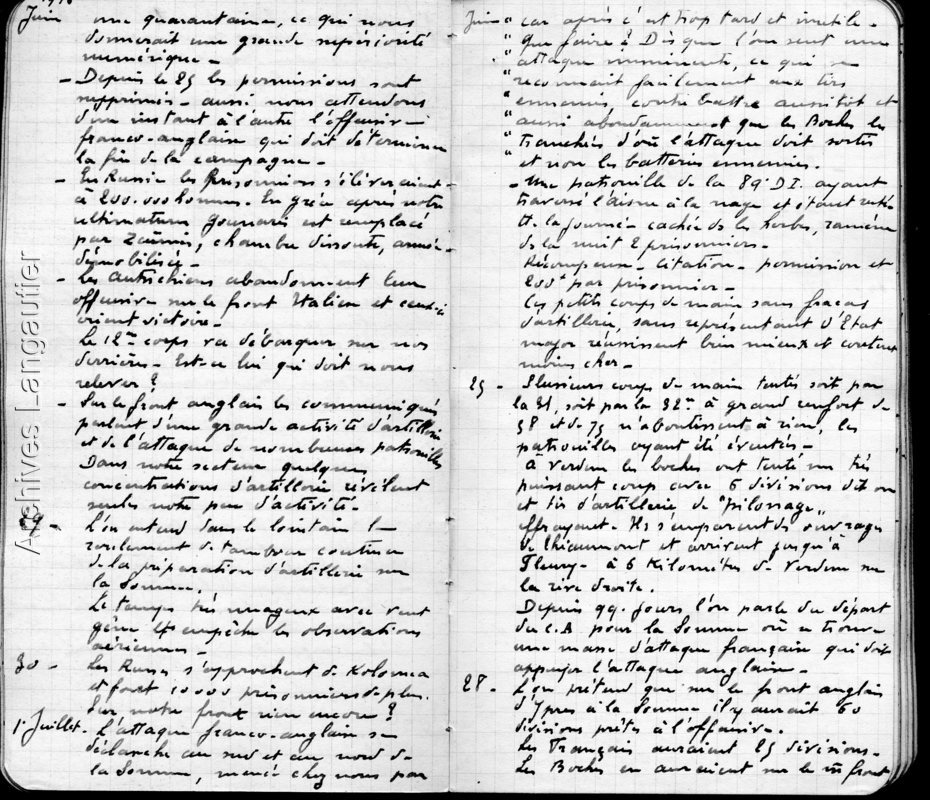 Juin une quarantaine, ce qui nous
donnerait une grande supériorité
numérique -
- Depuis le 25 les permissions sont
supprimées - aussi nous attendons
d'un instant à l'autre l'offensive
franco-anglaise qui doit déterminer
la fin de la campagne -
- En Russie les prisonniers s'élèveraient
à 200.000 hommes. En Grèce après notre
ultimatum Gounaris est remplacé
par Zaïmis, chambre dissoute, armée
démobilisée -
- Les autrichiens abandonnent leur
offensive sur le front Italien et ceux-ci
crient victoire -
Le 12me corps va débarquer sur nos
derrières - Est-ce lui qui doit nous
relever ?
- Sur le front anglais les communiqués
parlent d'une grande activité d'artillerie
et de l'attaque de nombreuses patrouilles
Dans notre secteur quelques
concentrations d'artillerie révèlent
seules notre peu d'activité -
29 - L'on entend dans le lointain le
roulement de tambour continu
de la préparation d'artillerie sur
la Somme.
Le temps très nuageux avec vent
gêne et empêche les observations
aériennes -
30 - Les Russes s'approchent de Kolomea
et font 10000 prisonniers de plus.
Sur notre front rien encore ?
1r Juillet - L'attaque franco-anglaise se
déclanche au sud et au nord de
la Somme, menée chez nous par
Juin " car après c'est trop tard et inutile -
" Que faire ? Dès que l'on sent une
" attaque imminente, ce qui se
" reconnait facilement aux tirs
" ennemis, contre battre aussitôt et
" aussi abondamment que les Boches les
" tranchées d'où l'attaque doit sortir
" et non les batteries ennemies.
- Une patrouille de la 89e D.I. ayant
traversé l'aisne à la nage et étant restée
tte la journée cachée ds les herbes, ramène
ds la nuit 2 prisonniers -
Récompense - Citation - permission et
200f par prisonnier -
Ces petits coups de main sans fracas
d'artillerie, sans représentant d'Etat
major réussissent bien mieux et coutent
moins cher -
25 - Plusieurs coups de main tentés soit par
la 31, soit par la 32me à grand renfort de
58 et de 75 n'aboutissent à rien, les
patrouilles ayant été éventées -
A Verdun les boches ont tenté un très
puissant coup avec 6 divisions dit on
et tir d'artillerie de "pilonnage"
effrayant - Ils s'emparent ds ouvrages
de thiaumont et arrivent jusqu'à
Fleury - à 6 Kilomètres de Verdun sur
la rive droite.
Depuis qq. jours l'on parle du départ
du C.A pour la Somme où se trouve
une masse d'attaque française qui doit
appuyer l'attaque anglaise -
28 - L'on prétend que sur le front anglais
d'Ypres à la Somme il y aurait 60
divisions prêtes à l'offensive.
Les Français auraient 25 divisions -
Les Boches en auraient sur le m front
Archives Langautier